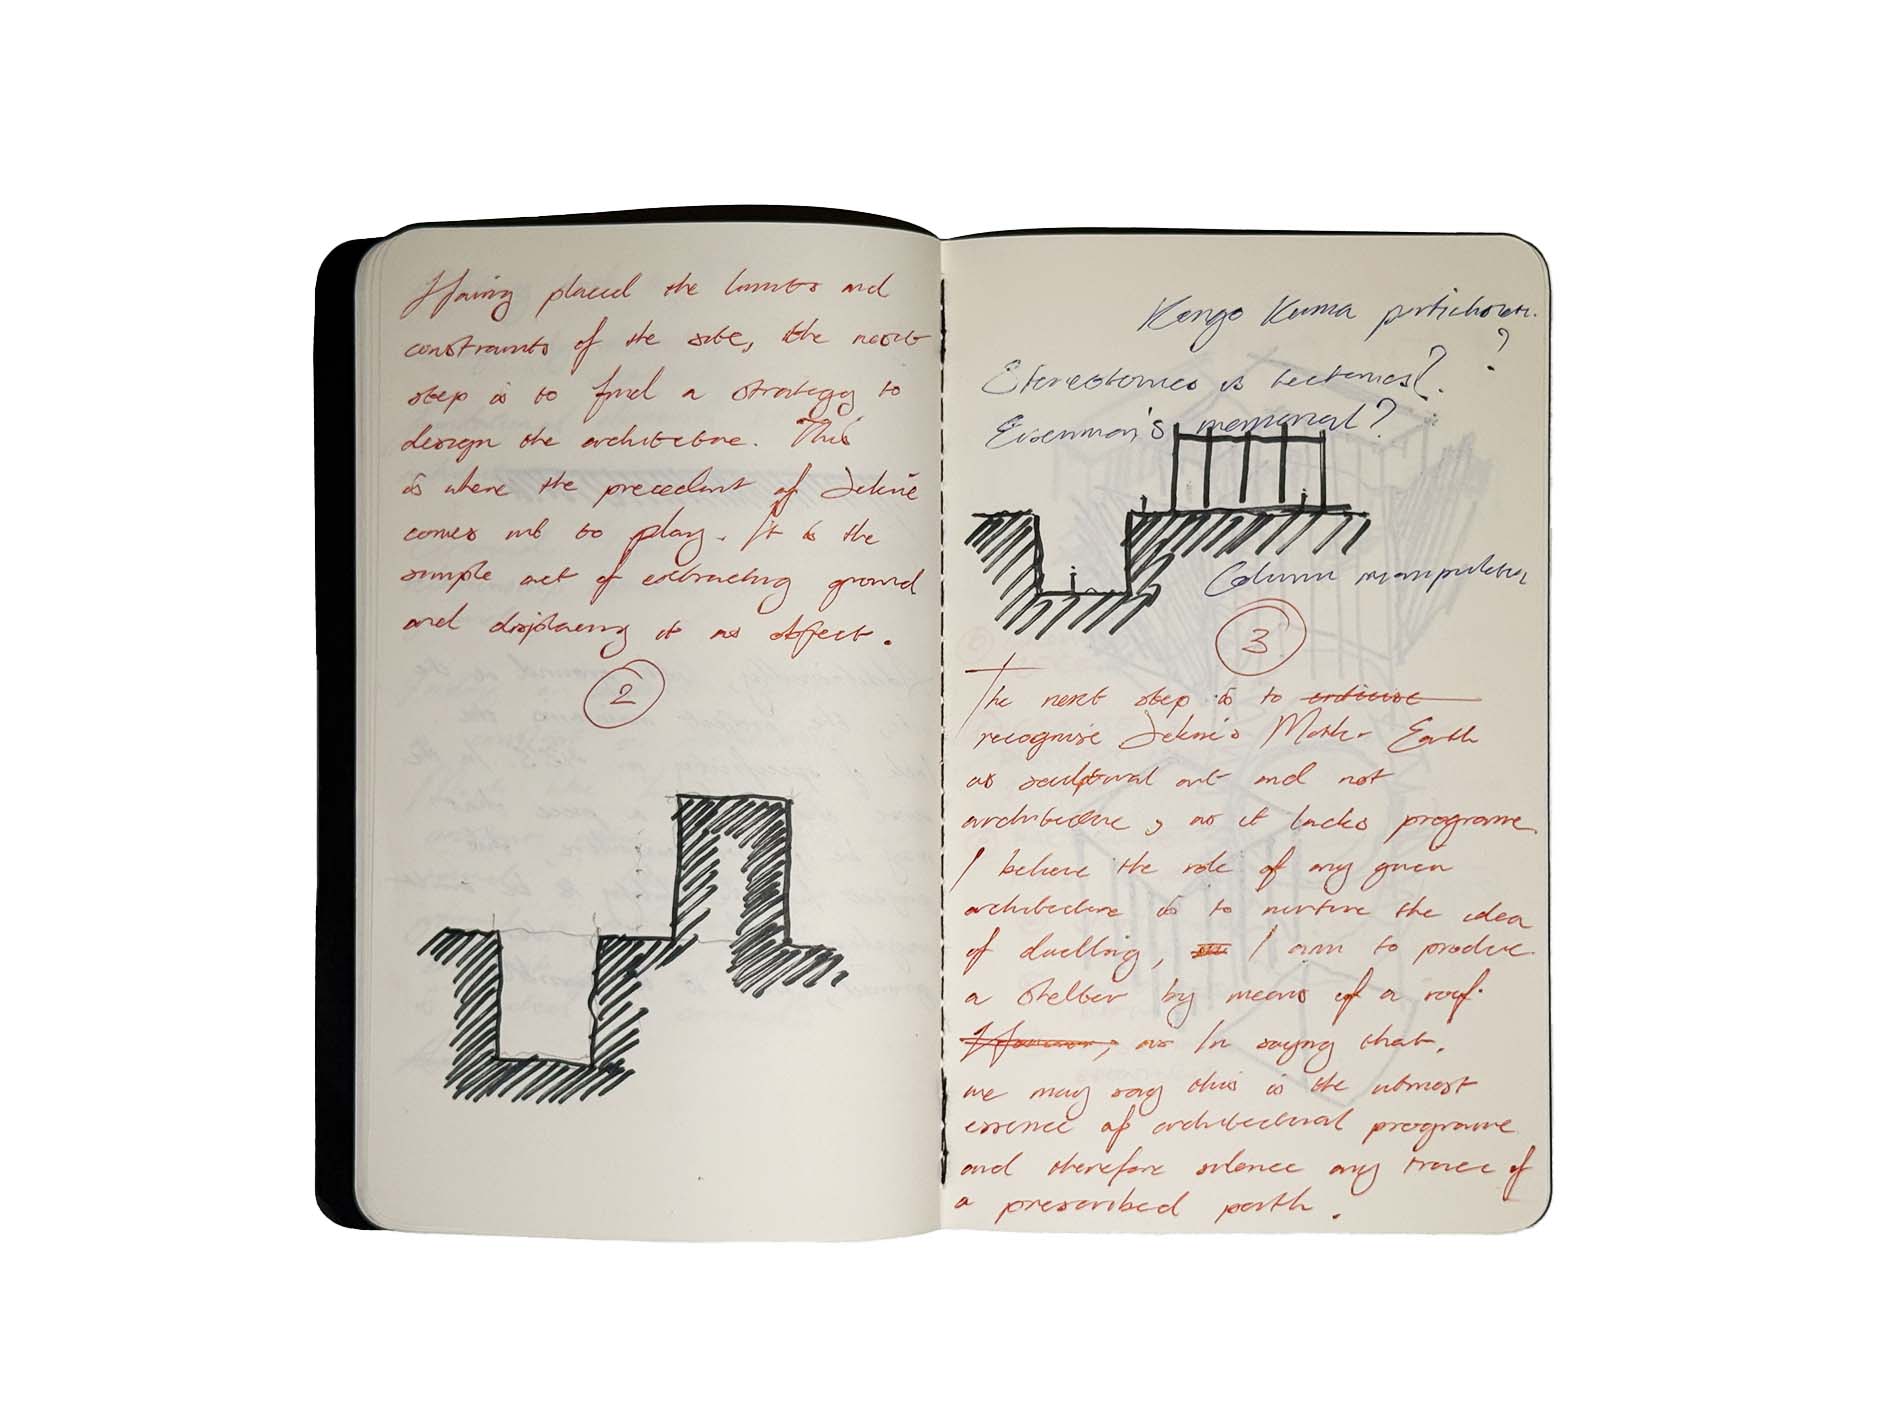 Having placed the limits and
constraints of the site, the next
step is to find a strategy to
design the architecture. This
is where the precedent of Sekine
comes into to play. It is the
simple act of extracting ground
and displacing it as object.
2
Kengo Kuma
?
Stereotomics vs tectonics?
Eisenman's memorial?
Column manipulation
3
The next step is to
recognise Sekine's Mother Earth
as sculptural art and not
architecture, as it lacks programme.
I believe the role of any given
architecture is to nurture the idea
of dwelling, I aim to produce
a shelter by means of a roof.
as In saying that,
we may say this is the utmost
essence of architectural programme
and therefore silence any trace of
a prescribed path.